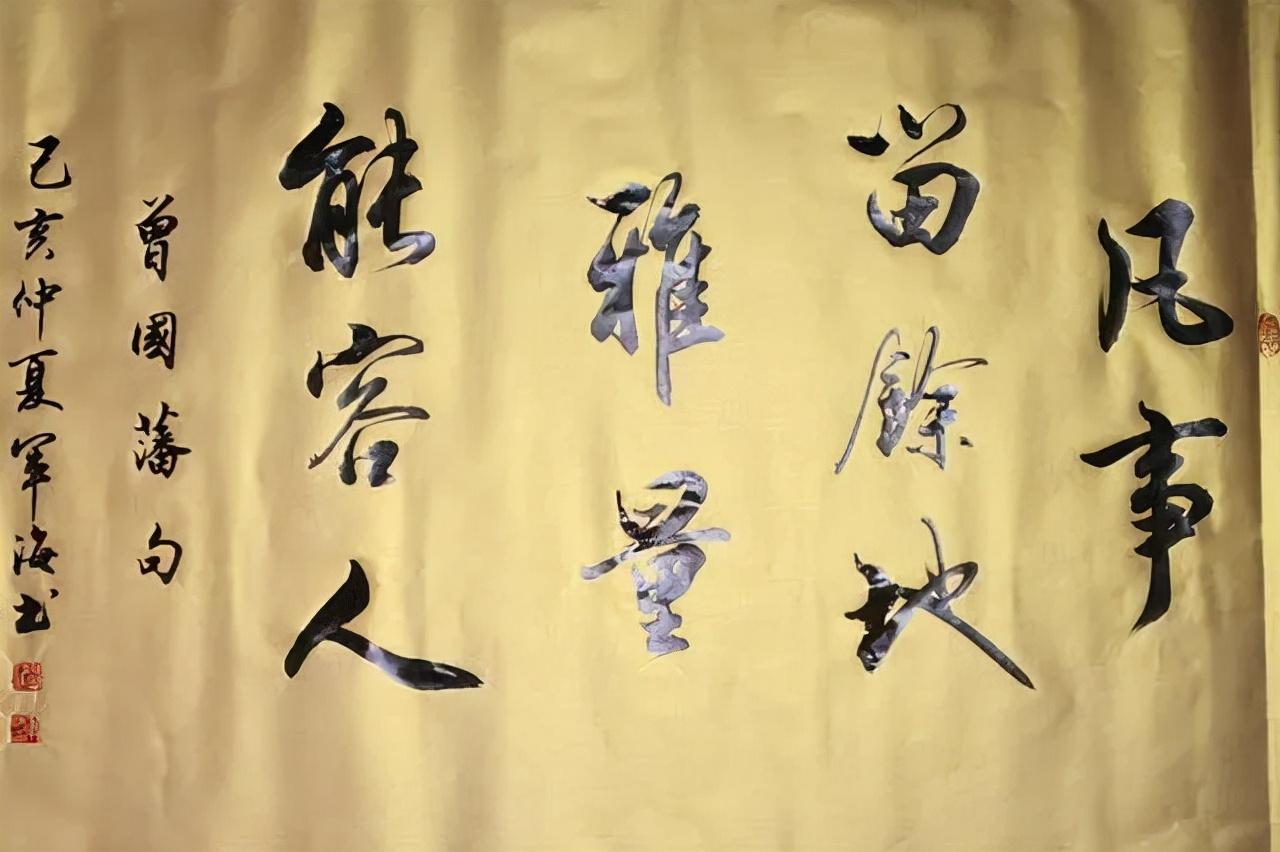 凡事
留餘地
雅量
能容人
曾國藩句
己亥仲夏軍海书